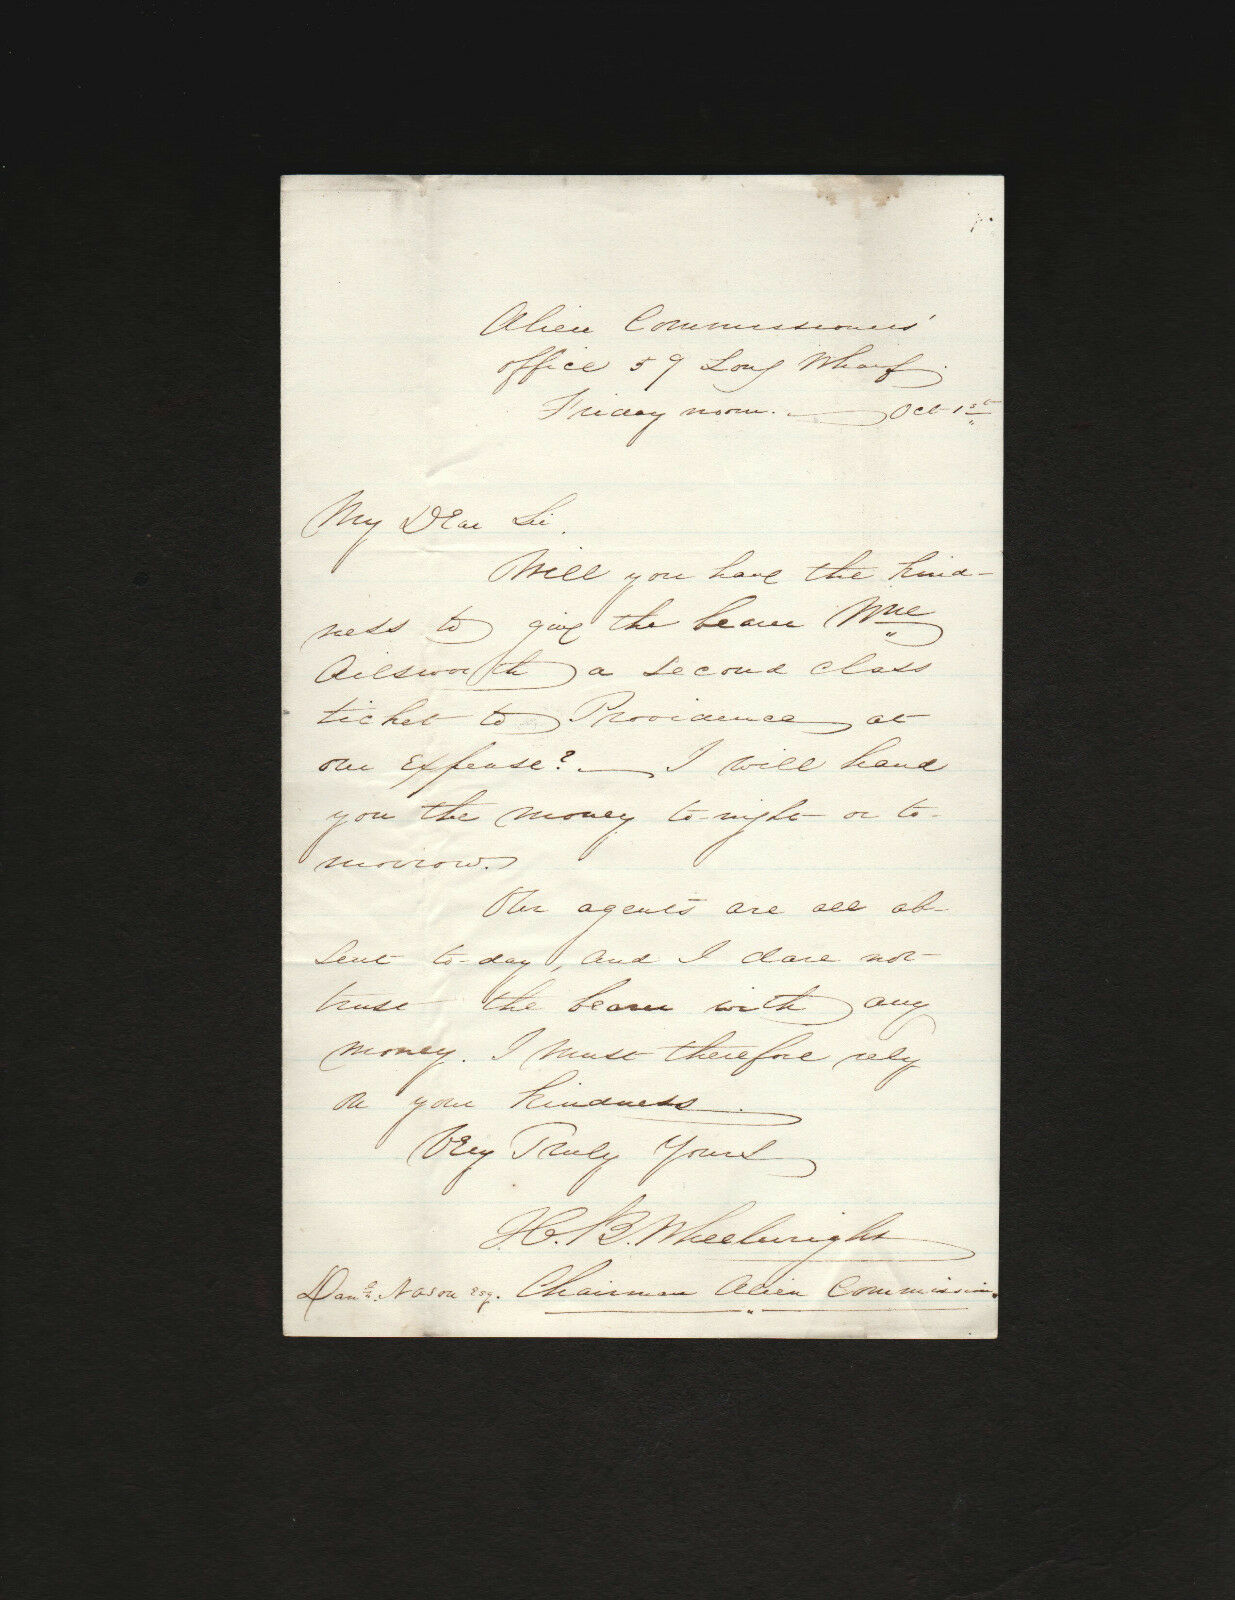 Alien Commissioners'
office 59 Long Wharf.
Friday noon. — Oct 1st
My Dear Sir.
Will you have the kind-
ness to give the bearer Wm
Ailsworth a second class
ticket to Providence at
our expense? — I will hand
you the money to-night or to-
morrow.
Our agents are all ab-
sent to-day, and I dare not
trust the bearer with any
money. I must therefore rely
on your kindness.
Very Truly Yours
H. B. Wheelwright
Danl. Nason Esq. Chairman Alien Commission.